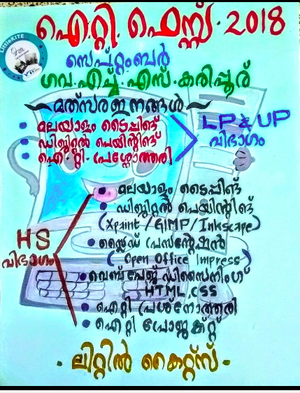 ഐ.റ്റി. ഫെസ്റ്റ് · 2018
സെപ്റ്റംബർ
ഗവ.എച്ച്.എസ്.കരിപ്പൂര്
മത്സരഇനങ്ങൾ
• മലയാളം ടൈപ്പിങ്ങ്
• ഡിജിറ്റൽ പെയിന്റിങ്ങ്
• ഐ.റ്റി. പ്രശ്നോത്തരി
LP & UP
വിഭാഗം
HS
വിഭാഗം
• മലയാളം ടൈപ്പിങ്ങ്
• ഡിജിറ്റൽ പെയിന്റിങ്ങ്
(Xpaint/GIMP/Inkscape)
• സ്ലൈഡ് പ്രസന്റേഷൻ
(Open Office Impress)
• വെബ്പേജ് ഡിസൈനിംഗ്
HTML, CSS
• ഐറ്റി പ്രശ്നോത്തരി
• ഐറ്റി പ്രോജക്റ്റ്
· ലിറ്റിൽ കൈറ്റ്സ് ·